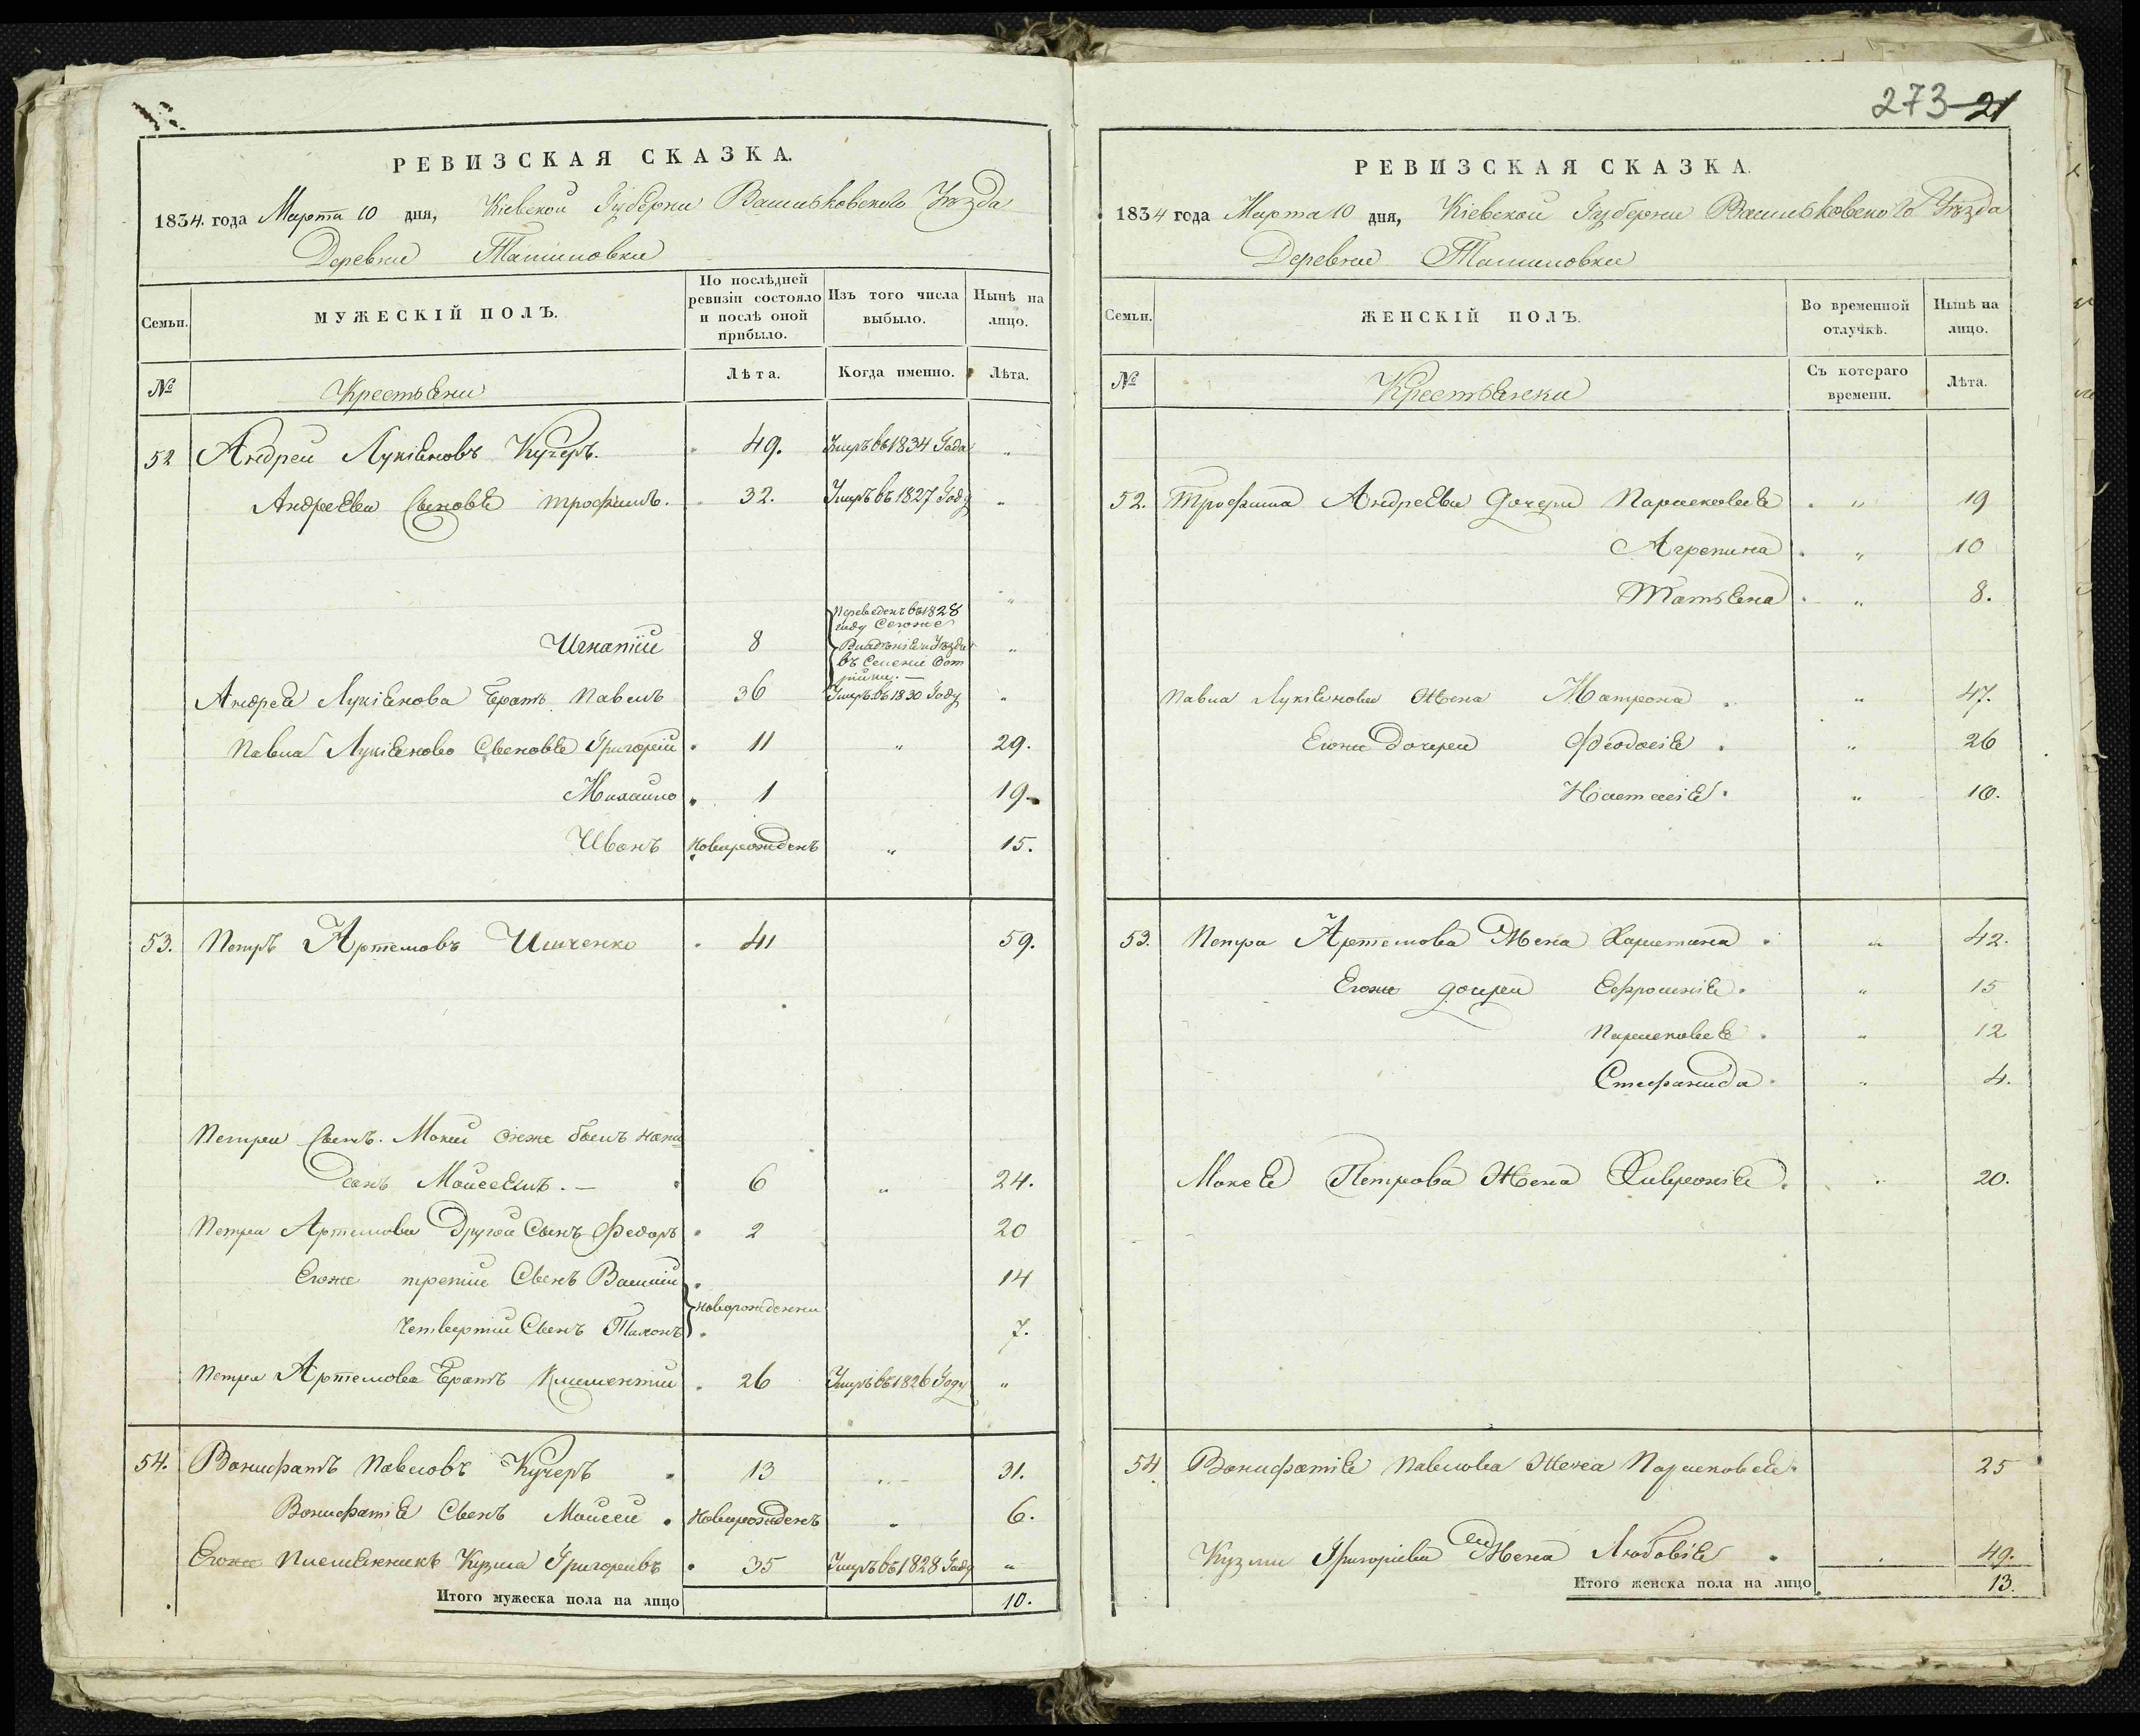 273 21
РЕВИЗСКАЯ СКАЗКА.
1834. года Марта 10 дня, Кіевской Губерни Васильковского Уѣзда
Деревни
Семьи.
МУЖЕСКІЙ ПОЛЪ.
По послѣдней ревизіи состояло и послѣ оной прибыло.
Изъ того числа выбыло.
Нынѣ на лицо.
№
Крестьяни
Лѣта.
Когда именно.
Лѣта.
52 Андрей Лукіяновъ Кучеръ. 49. Умръ въ 1834 Года "
Андреяви Сыновя трофимъ. 32. Умръ въ 1827 Году "
Игнатій 8 Переведенъ въ 1828
году Сегоже
Владѣнія и Уѣзда "
въ Селеніе
Андрея Лукіянова Братъ Павелъ 36 Умръ въ 1830 Году "
Павла Лукіяново Сыновя Григорій 11 " 29.
Михайло 1 19.
Иванъ Новорожденъ " 15.
53. Петръ Артемовъ Ильченко 41 59.
Петра Сынъ. Мокій онже былъ
Моисеемъ. — 6 " 24.
Петра Артемова Другой Сынъ Федоръ 2 20
Егоже третій Сынъ Василій 14
новорожденни
Четвертій Сынъ Тихонъ 7.
Петра Артемова Братъ Климентій 26 Умръ въ 1826 Году "
54. Вонифатъ Павловъ Кучеръ 13 " 31.
Вонифатія Сынъ Моисей Новорожденъ " 6.
Егоже Племянникъ Кузма Григоревъ 35 Умръ въ 1828 Году "
Итого мужеска пола на лицо 10.
РЕВИЗСКАЯ СКАЗКА.
1834 года Марта 10 дня, Кіевской Губерни Васильковского Уѣзда
Деревни
Семьи.
ЖЕНСКІЙ ПОЛЪ.
Во временной отлучкѣ.
Нынѣ на лицо.
№
Крестьянки
Съ котораго времени.
Лѣта.
52. Трофима Андреяви дочери Парасковея " 19
Агрепина " 10
Татьяна " 8.
Павла Лукіянова Жена Матрона " 47.
Егоже Дочери Феодосія " 26
Настасія " 10.
53. Петра Артемова Жена Харитина " 42.
Егоже дочери Ефросинія " 15
Парасковея " 12
Стефанида " 4.
Мокея Петрова Жена Хивронія " 20.
54 Вонифатія Павлова Жена Парасковея 25
Кузми Григоріева Жена Любовія 49.
Итого женска пола на лицо 13.